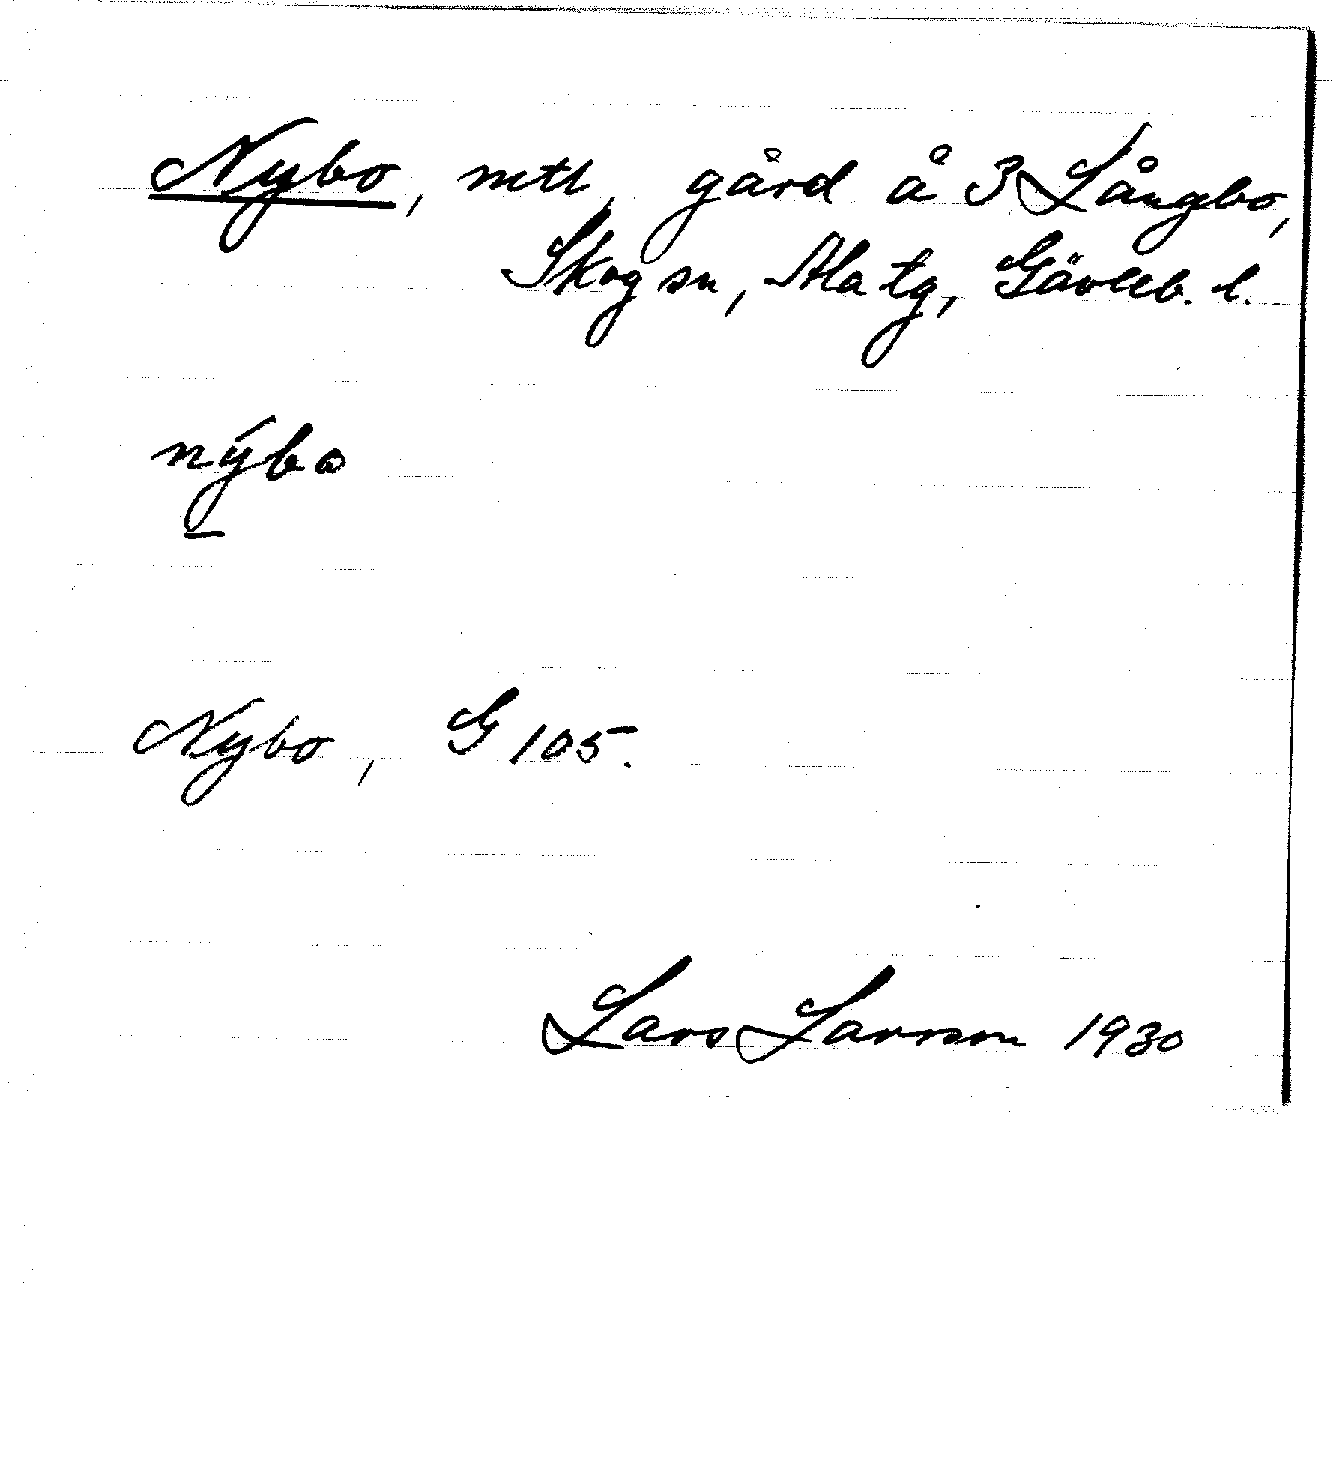 Nybo, mtl, gård å 3 Långbo,
Skog sn, Ala tg, Gävleb. l.
nýbo
Nybo, G 105.
Lars Larsson 1930